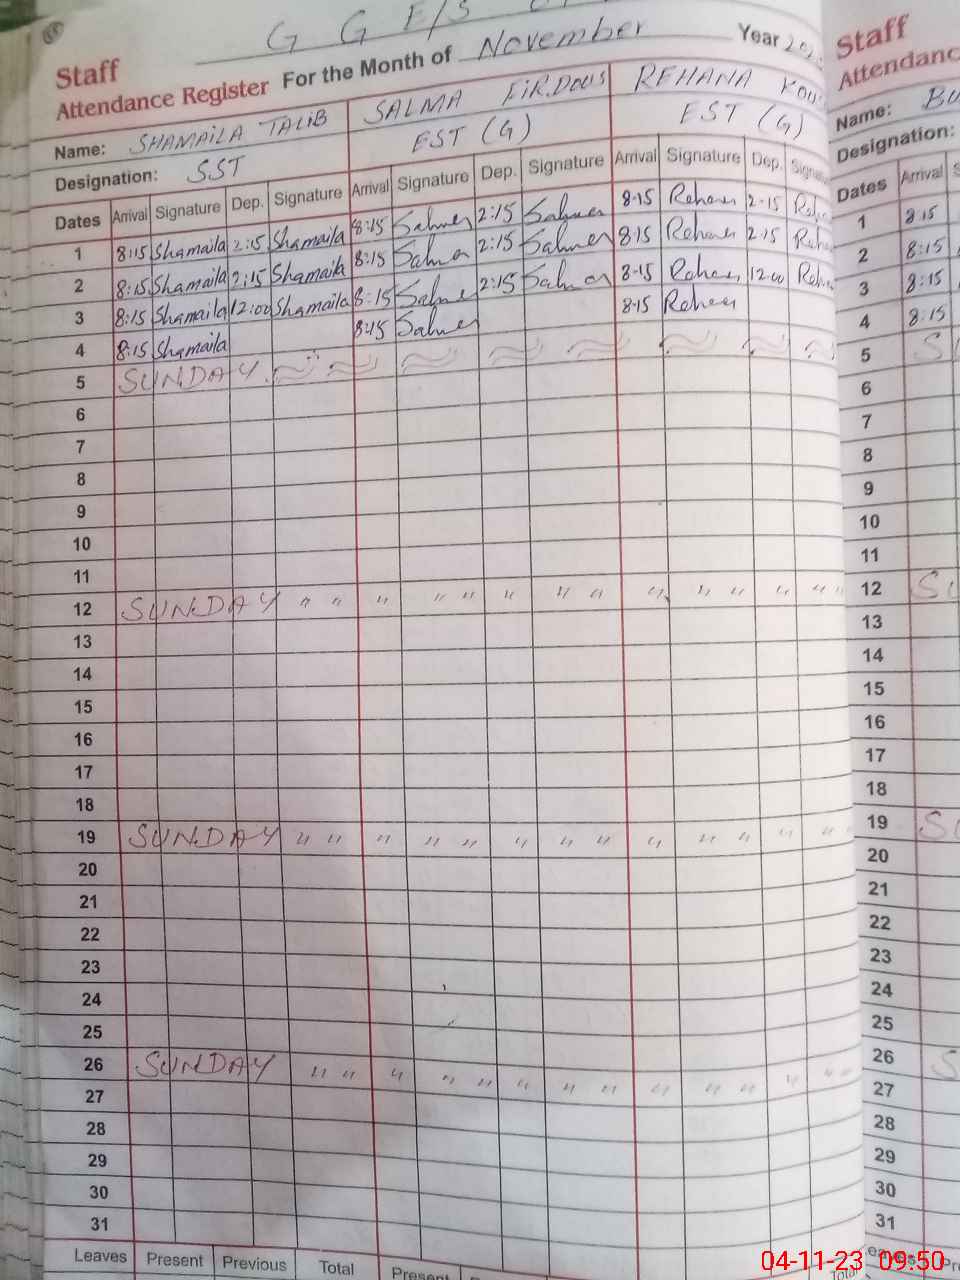 G G E/S
Staff
Attendance Register For the Month of November Year
Name: SHAMAILA TALIB SALMA FIRDOUS REHANA
Designation: SST EST (G) EST (G)
Dates Arrival Signature Dep. Signature Arrival Signature Dep. Signature Arrival Signature Dep.
1 8:15 Shamaila 2:15 Shamaila 8:15 Salma 2:15 Salma 8-15 Rehana 2-15
2 8:15 Shamaila 2:15 Shamaila 8:15 Salma 2:15 Salma 8:15 Rehana 2:15
3 8:15 Shamaila 12:00 Shamaila 8:15 Salma 2:15 Salma 8-15 Rehana 12:00
4 8:15 Shamaila 8:15 Salma 8-15 Rehana
5 SUNDAY
6
7
8
9
10
11
12 SUNDAY " " " " " " " " " " " " "
13
14
15
16
17
18
19 SUNDAY " " " " " " " " " " " " "
20
21
22
23
24
25
26 SUNDAY " " " " " " " " " " " " "
27
28
29
30
31
Leaves Present Previous Total Present
Staff
Name:
Designation:
Dates Arrival
1 8:15
2 8:15
3 8:15
4 8:15
5
6
7
8
9
10
11
12
13
14
15
16
17
18
19
20
21
22
23
24
25
26
27
28
29
30
31
Total
04-11-23 09:50